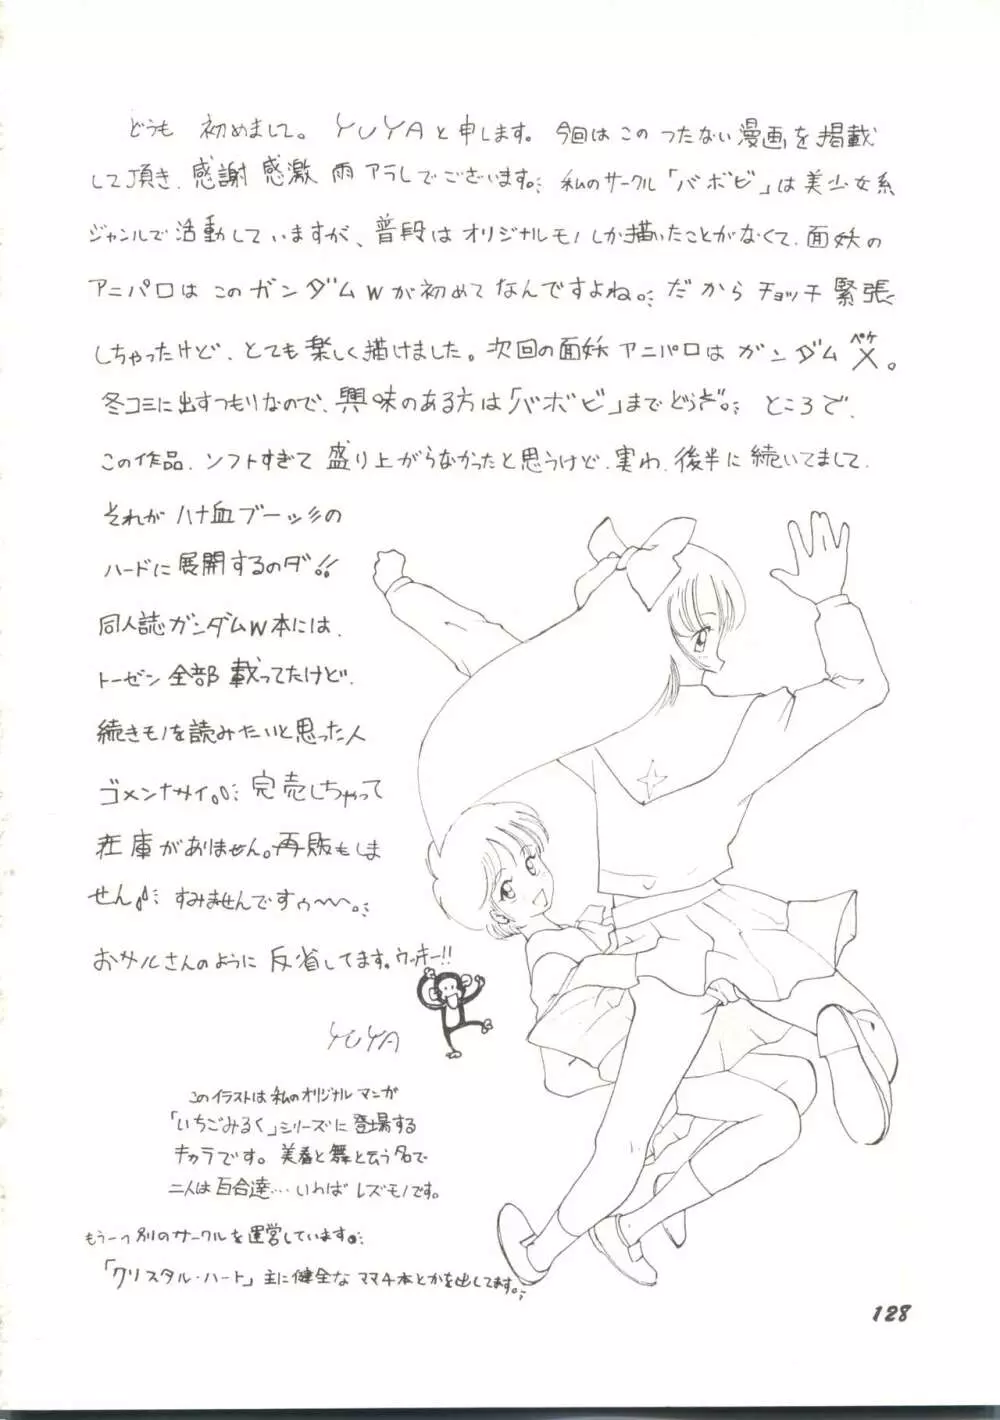 どうも 初めまして。 YUYAと申します。 今回は このつたない漫画を掲載
して頂き、感謝 感激 雨アラレでございます。 私のサークル「バボビ」は美少女系
ジャンルで活動していますが、普段はオリジナルモノしか描いたことがなくて、面妖の
アニパロはこのガンダムWが初めてなんですよね。だからチョッチ緊張
しちゃったけど、とても楽しく描けました。次回の面妖アニパロはガンダムX。
ペケ
冬コミに出すつもりなので、興味のある方は「バボビ」までどうぞ。ところで、
この作品、ソフトすぎて盛り上がらなかったと思うけど、実わ、後半に続いてまして、
それがハナ血ブーッの
ハードに展開するのダ!!
同人誌ガンダムW本には、
トーゼン全部載ってたけど、
続きモノを読みたいと思った人
ゴメンナサイ。完売しちゃって
在庫がありません。再販もしま
せん。すみませんですゥ〜〜。
おサルさんのように反省してます。ウッキー!!
YUYA
このイラストは私のオリジナルマンガ
「いちごみるく」シリーズに登場する
キャラです。美春と舞と云う名で
二人は百合達…いわばレズモノです。
もう一つ別のサークルを運営しています。
「クリスタル・ハート」主に健全なママ4本とかを出してます。
128